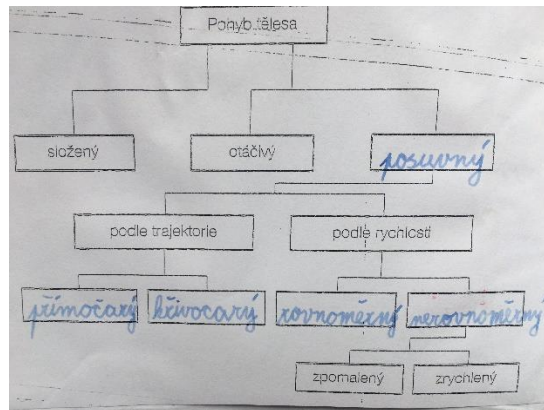 Pohyb tělesa
složený otáčivý posuvný
podle trajektorie podle rychlosti
přímočarý křivočarý rovnoměrný nerovnoměrný
zpomalený zrychlený